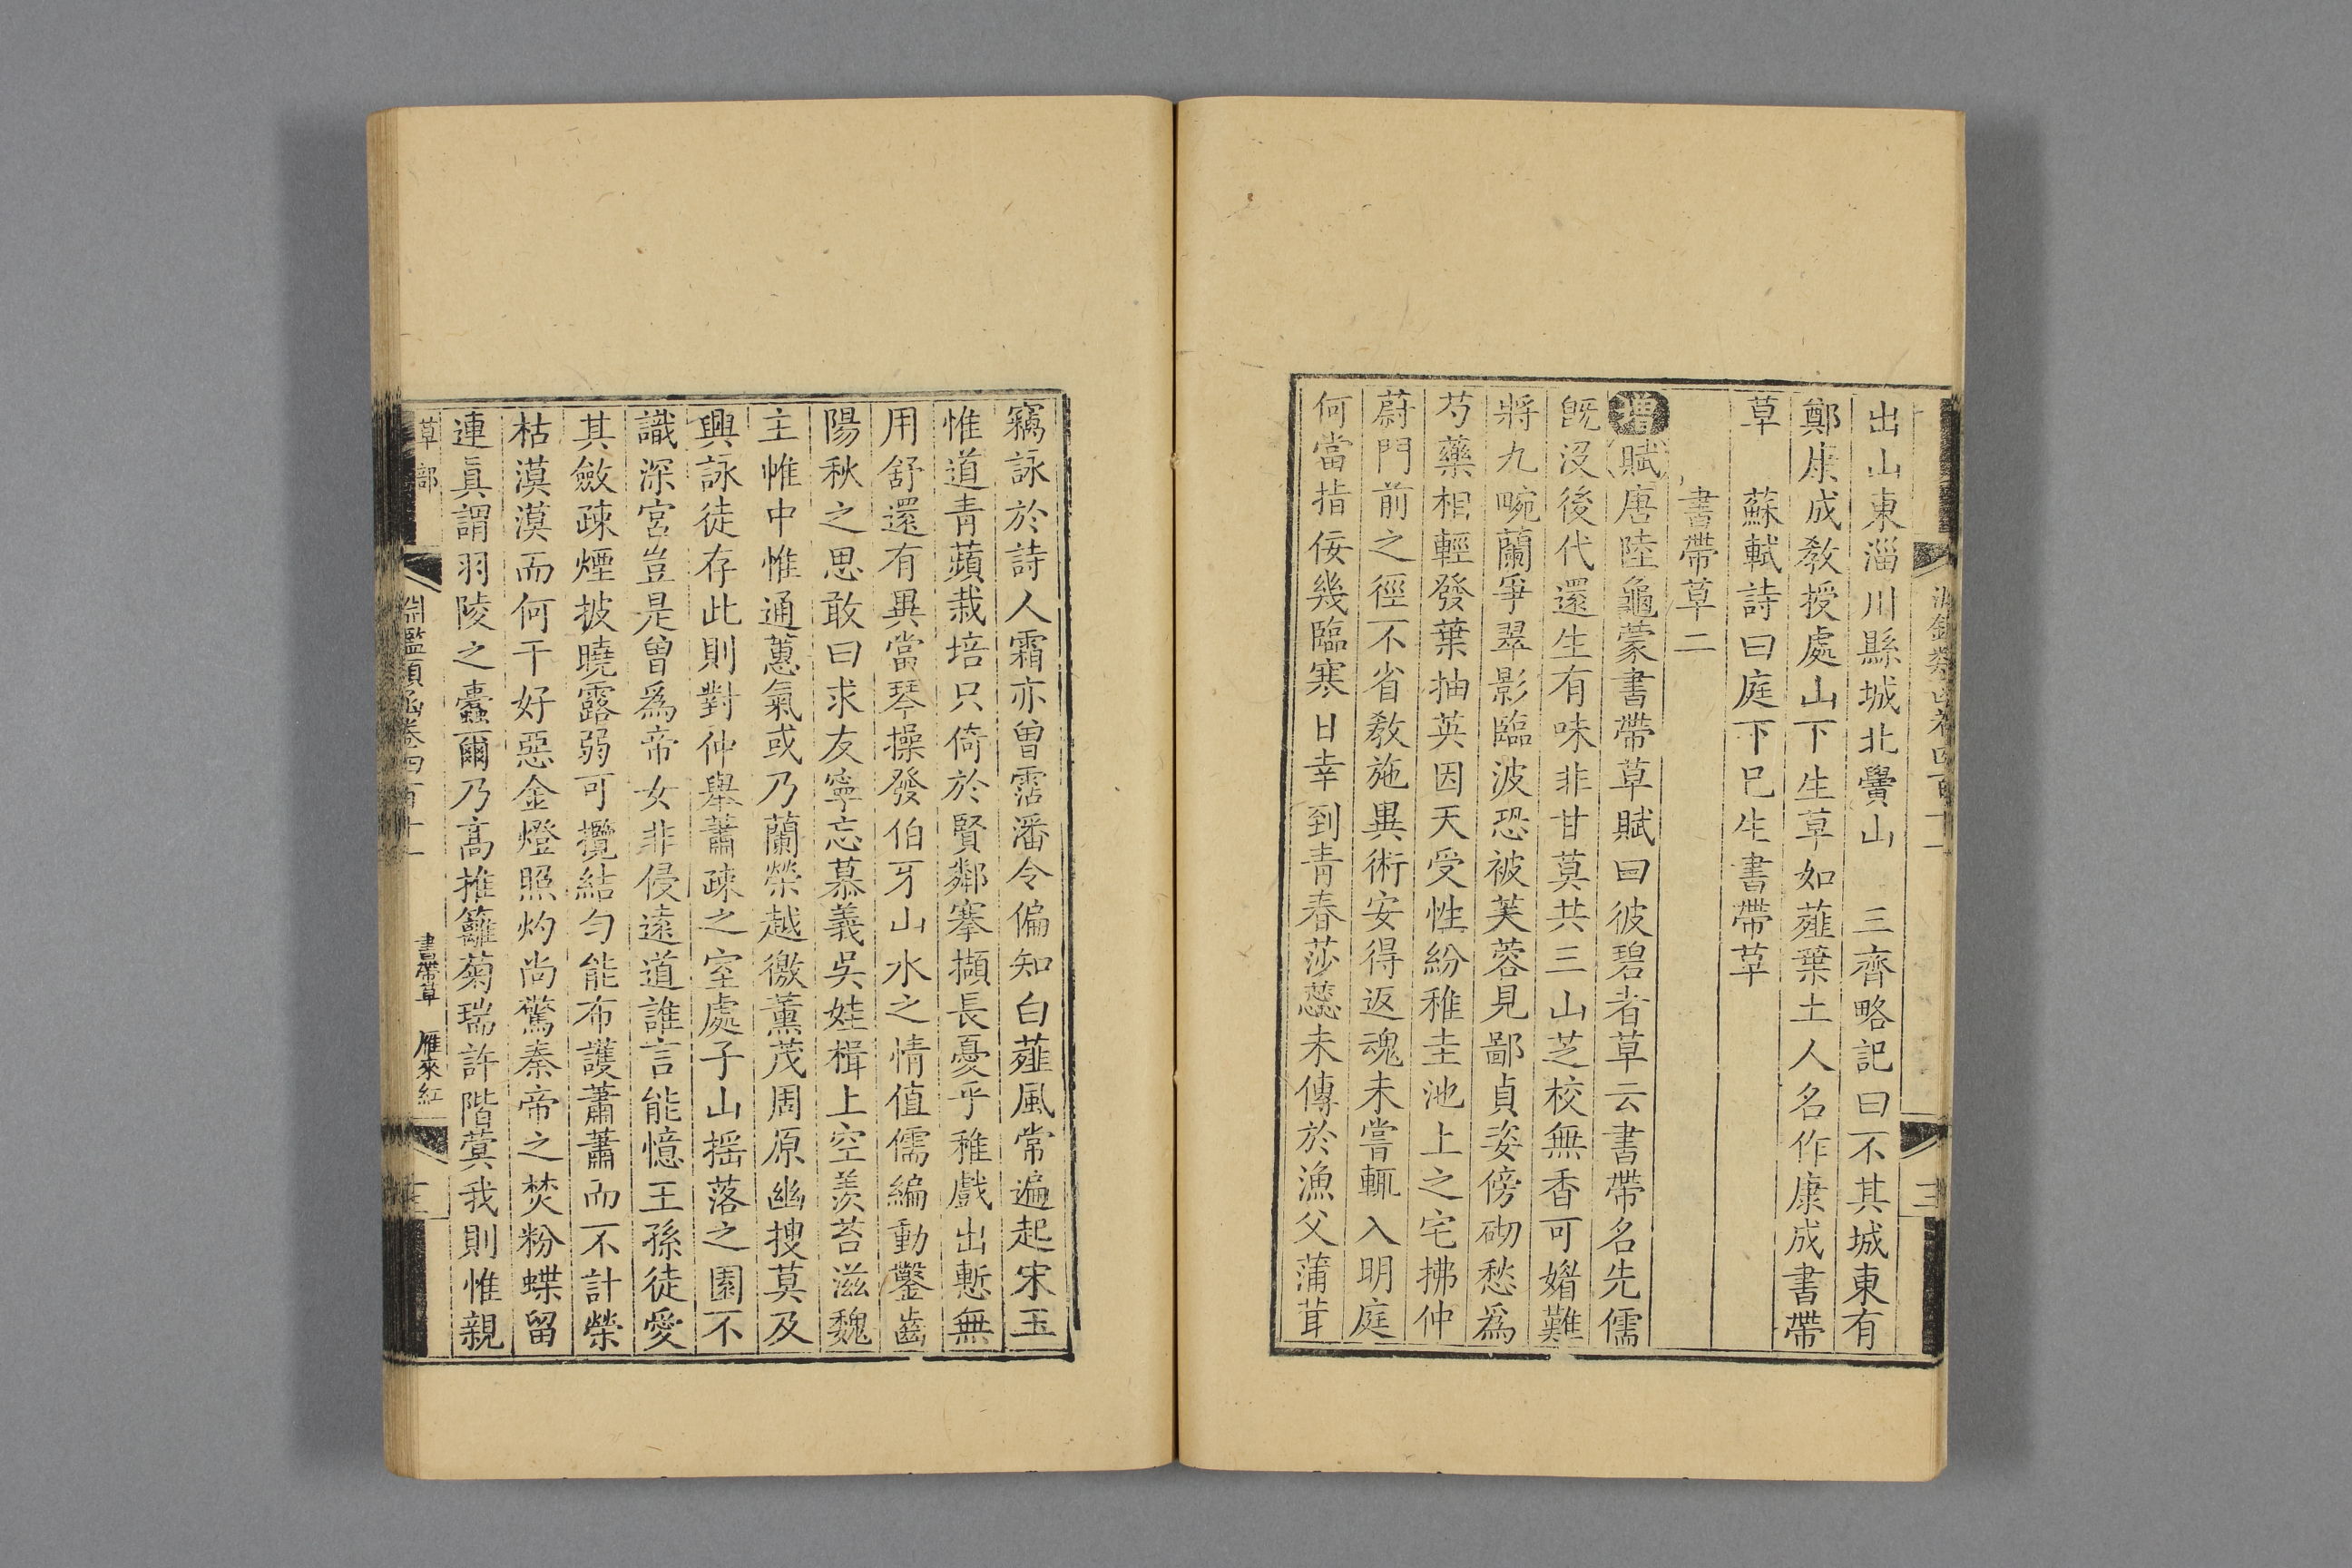 出山東淄川縣城北黌山　三齊略記曰不其城東有
鄭康成敎授處山下生草如薤葉土人名作康成書帶
草　蘇軾詩曰庭下已生書帶草
書帶草二
增賦唐陸龜蒙書帶草賦曰彼碧者草云書帶名先儒
旣沒後代還生有味非甘莫共三山芝校無香可媚難
將九畹蘭爭翠影臨波恐被芙蓉見鄙貞姿傍砌愁爲
芍藥相輕發葉抽英因天受性紛稚圭池上之宅拂仲
蔚門前之徑不省敎施異術安得返魂未嘗輒入明庭
何當指佞幾臨寒日幸到靑春莎蕊未傳於漁父蒲茸
竊詠於詩人霜亦曾霑潘令偏知白薤風常遍起宋玉
惟道靑蘋栽培只倚於賢鄰搴擷長憂乎稚戲出慙無
用舒還有異當琴操發伯牙山水之情值儒編動鑿齒
陽秋之思敢曰求友寧忘慕義吳娃楫上空羨苔滋魏
主帷中惟通蕙氣或乃蘭榮越徼薰茂周原幽搜莫及
興詠徒存此則對仲舉蕭疎之室處子山搖落之園不
識深宮豈是曾爲帝女非侵遠道誰言能憶王孫徒愛
其斂疎煙披曉露弱可攬結勻能布護蕭蕭而不計榮
枯漠漠而何干好惡金燈照灼尚驚秦帝之焚粉蝶留
連眞謂羽陵之蠹爾乃高推籬菊瑞許階蓂我則惟親
草部
淵鑑類函卷四百十一
書帶草　雁來紅